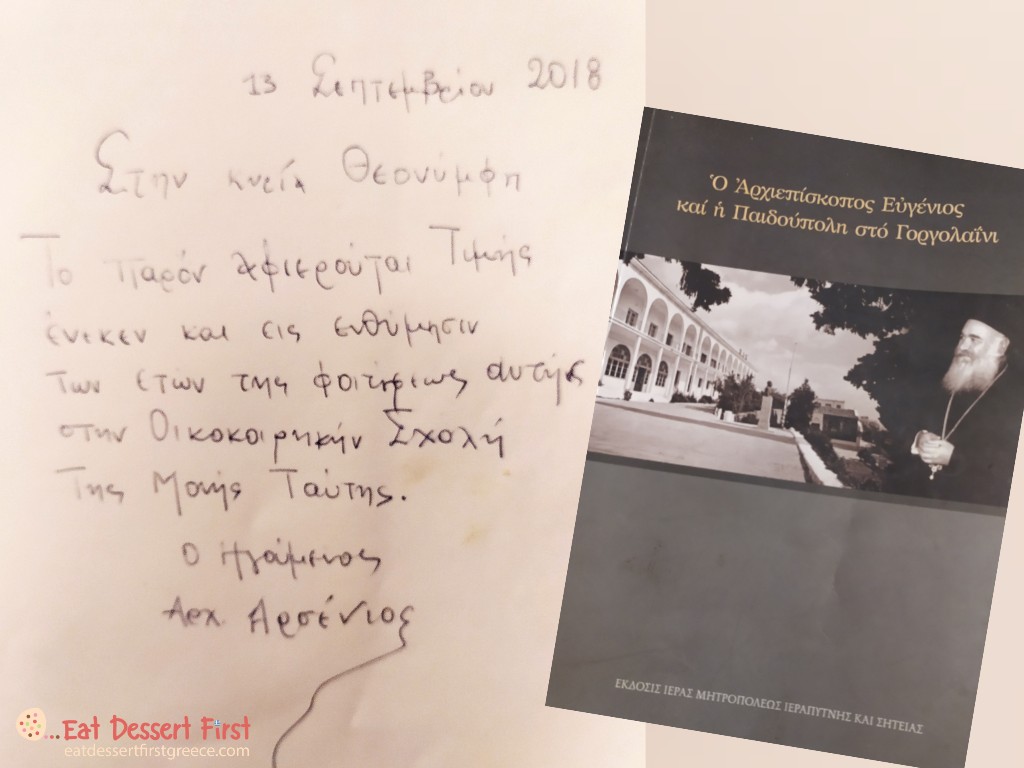 13 Σεπτεμβρίου 2018
Στην κυρία Θεονύμφη
Το παρόν αφιερούται Τιμής
ένεκεν και εις ενθύμησιν
των ετών της φοιτήσεως αυτής
στην Οικοκυρικήν Σχολή
Της Μονής Ταύτης.
Ο Ηγούμενος
Αρχ. Αρσένιος
Ὁ Ἀρχιεπίσκοπος Εὐγένιος
καί ἡ Παιδούπολη στό Γοργολαΐνι
ΕΚΔΟΣΙΣ ΙΕΡΑΣ ΜΗΤΡΟΠΟΛΕΩΣ ΙΕΡΑΠΥΤΝΗΣ ΚΑΙ ΣΗΤΕΙΑΣ
...Eat Dessert First
eatdessertfirstgreece.com